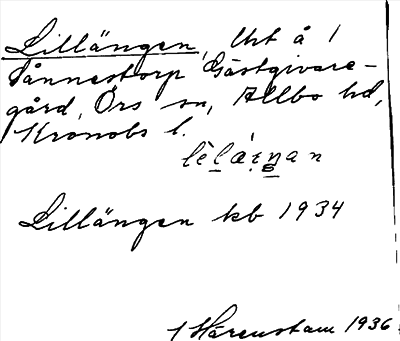 Lillängen, Urt å 1
Tånnestorp Gästgivare-
gård, Örs sn, Allbo hd,
Kronobs l.
Lillängen kb 1934
J Hårenstam 1936